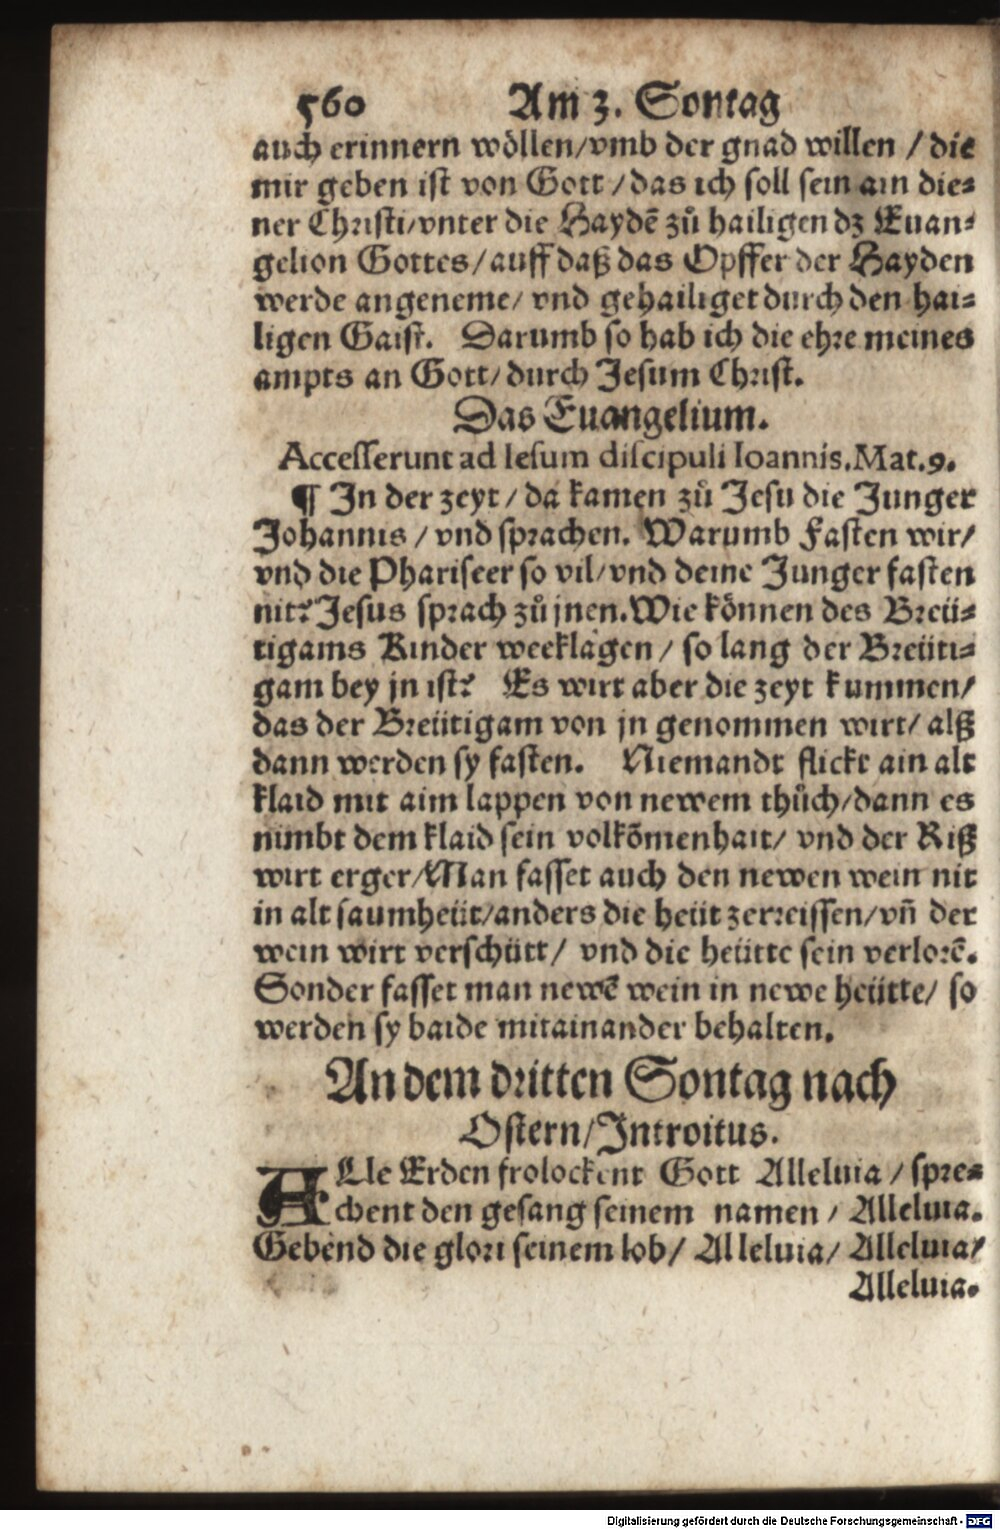 560 Am 3. Sontag
auch erinnern wöllen/vmb der gnad willen / die
mir geben ist von Gott / das ich soll sein ain die⸗
ner Christi/vnter die Haydē zů hailigen dz Euan⸗
gelion Gottes/auff daß das Opffer der Hayden
werde angeneme/ vnd gehailiget durch den hai⸗
ligen Gaist. Darumb so hab ich die ehre meines
ampts an Gott/durch Jesum Christ.
Das Euangelium.
Accesserunt ad Iesum discipuli Ioannis.Mat.9.
¶ In der zeyt / da kamen zů Jesu die Junger
Johannis / vnd sprachen. Warumb Fasten wir/
vnd die Phariseer so vil/vnd deine Junger fasten
nit? Jesus sprach zů jnen. Wie können des Breü⸗
tigams Kinder weeklagen / so lang der Breüti⸗
gam bey jn ist? Es wirt aber die zeyt kummen/
das der Breütigam von jn genommen wirt/ alß
dann werden sy fasten. Niemandt flickt ain alt
klaid mit aim lappen von newem thůch/dann es
nimbt dem klaid sein volkōmenhait/ vnd der Riß
wirt erger/Man fasset auch den newen wein nit
in alt saumheüt/anders die heüt zerreissen/vñ der
wein wirt verschütt/ vnd die heütte sein verlorē.
Sonder fasset man newē wein in newe heütte/ so
werden sy baide mitainander behalten.
An dem dritten Sontag nach
Ostern/Introitus.
ALle Erden frolockent Gott Alleluia / spre⸗
chent den gesang seinem namen / Alleluia.
Gebend die glori seinem lob/ Alleluia/ Alleluia/
Alleluia.
Digitalisierung gefördert durch die Deutsche Forschungsgemeinschaft - DFG